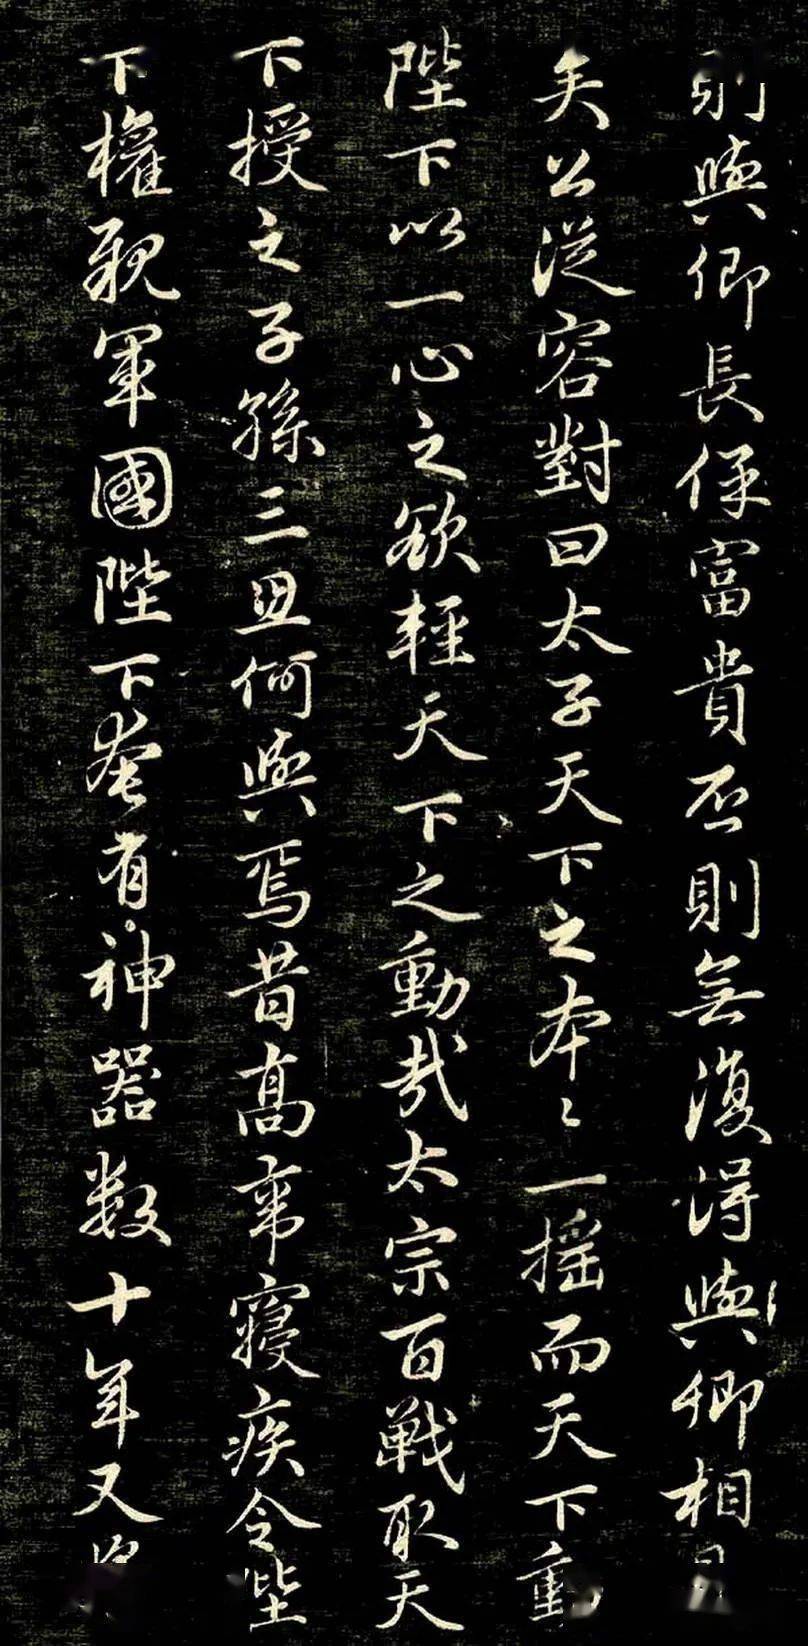 則與卿長保富貴否則無復得與卿相
矣公從容對曰太子天下之本〻一搖而天下動
陛下以一心之欲輕天下之動哉太宗百戰取天
下授之子孫三思何與焉昔高帝寢疾令陛
下權親軍國陛下奄有神器數十年又